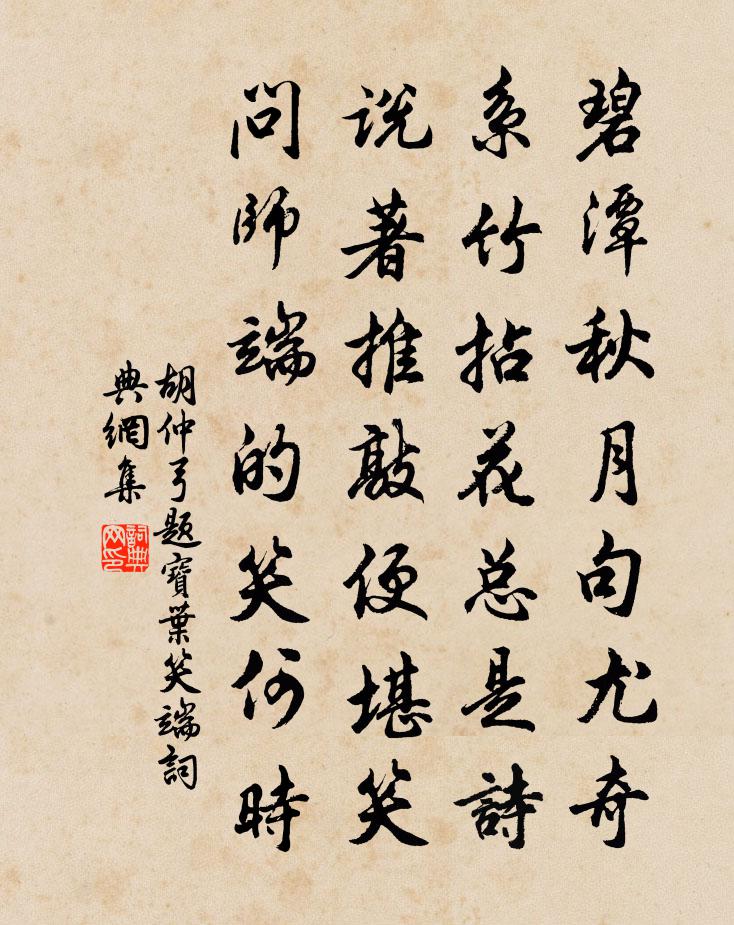 碧潭秋月句尤奇
系竹拈花总是詩
説著推敲便堪笑
問師端的笑何時
胡仲弓题寶葉笑端詞
典網集
詞典网印